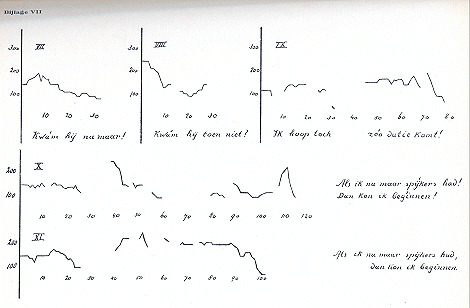 Bijlage VII
VII VIII IX
300 300 300
200 200 200
100 100 100
10 20 30 10 20 30 10 20 30 40 50 60 70 80
Kwam hij nu maar! Kwam hij toen niet! Ik hoop toch zóó dat ie komt!
X
200
100
Als ik nu maar spijkers had!
Dan kon ik beginnen!
10 20 30 40 50 60 70 80 90 100 110 120
XI
200
100
Als ik nu maar spijkers had,
dan kon ik beginnen.
10 20 30 40 50 60 70 80 90 100